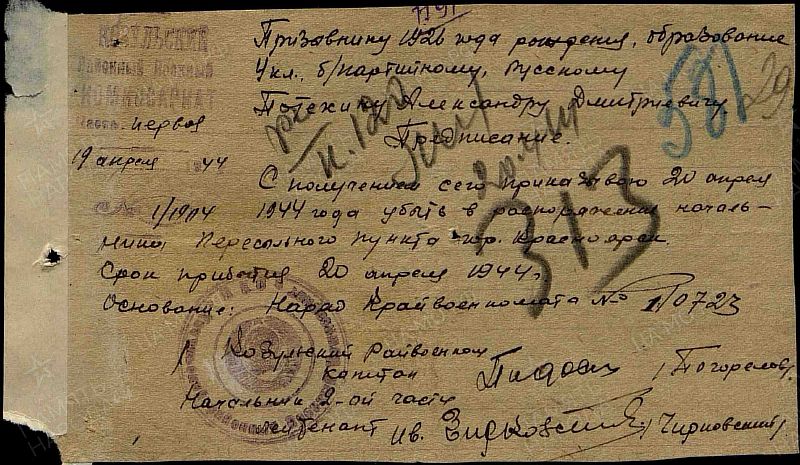 1191
Козульский
Районный Военный
Комиссариат
часть первая
19 апреля 44
№ 1/1904
Призывнику 1926 года рождения, образование
4 кл., б/партийному, русскому
Потехину Александру Дмитриевичу
Предписание.
581
29
п. 122
20.4.44
313
С получением сего приказываю 20 апреля
1944 года убыть в распоряжение началь-
ника Пересыльного пункта гор. Красноярск.
Срок прибытия 20 апреля 1944 г.
Основание: Наряд Крайвоенкомата № 1/0723
Козульский Райвоенком
капитан / Погорелов/
Начальник 2-ой части
лейтенант /Чирковский/